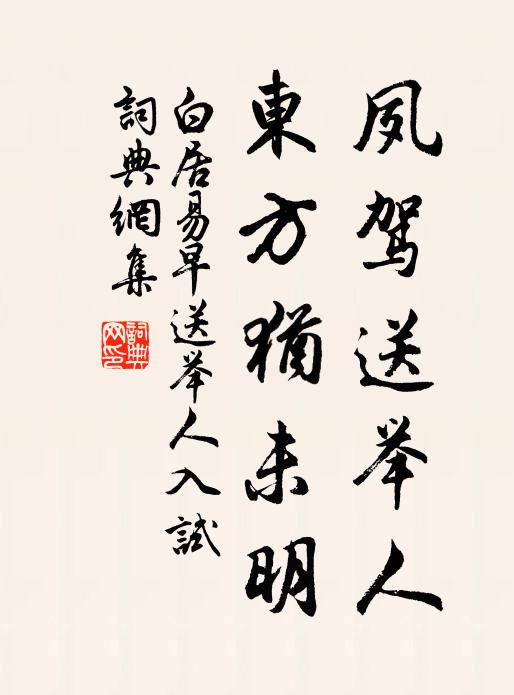 夙驾送举人
東方猶未明
白居易早送举人入試
詞典網集
詞典网印